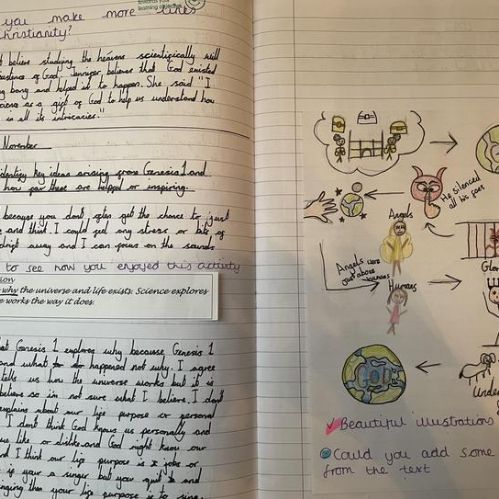 you make more links
Christianity?
towards your
learning objective
t believe studying the heavens scientifically will
existence of God. Jennifer believes that God existed
g bang and helped it to happen. She said "I
science as a gift of God to help us understand how
in all its intricacies."
November
identify key ideas arising from Genesis 1 and
how far these are helpful or inspiring.
because you don't often get the chance to just
and think I could feel any stress or bits of
drift away and I can focus on the sounds
to see how you enjoyed this activity
why the universe and life exists. Science explores
works the way it does.
at Genesis 1 explores why because Genesis 1
and what happened not why. I agree
tells us how the universe works but it is
believe so im not sure what I believe. I don't
explains about our life purpose or personal
I don't think God knows us personally and
we like or dislike and God might know our
nd I think our life purpose is a joke or
is your a singer but your quit and
singing then your life purpose is to sing.
He silenced
all his foes
Angels
Angels were
just above
humans
Humans
Glor
GOD
Under
Beautiful illustrations
Could you add some
from the text